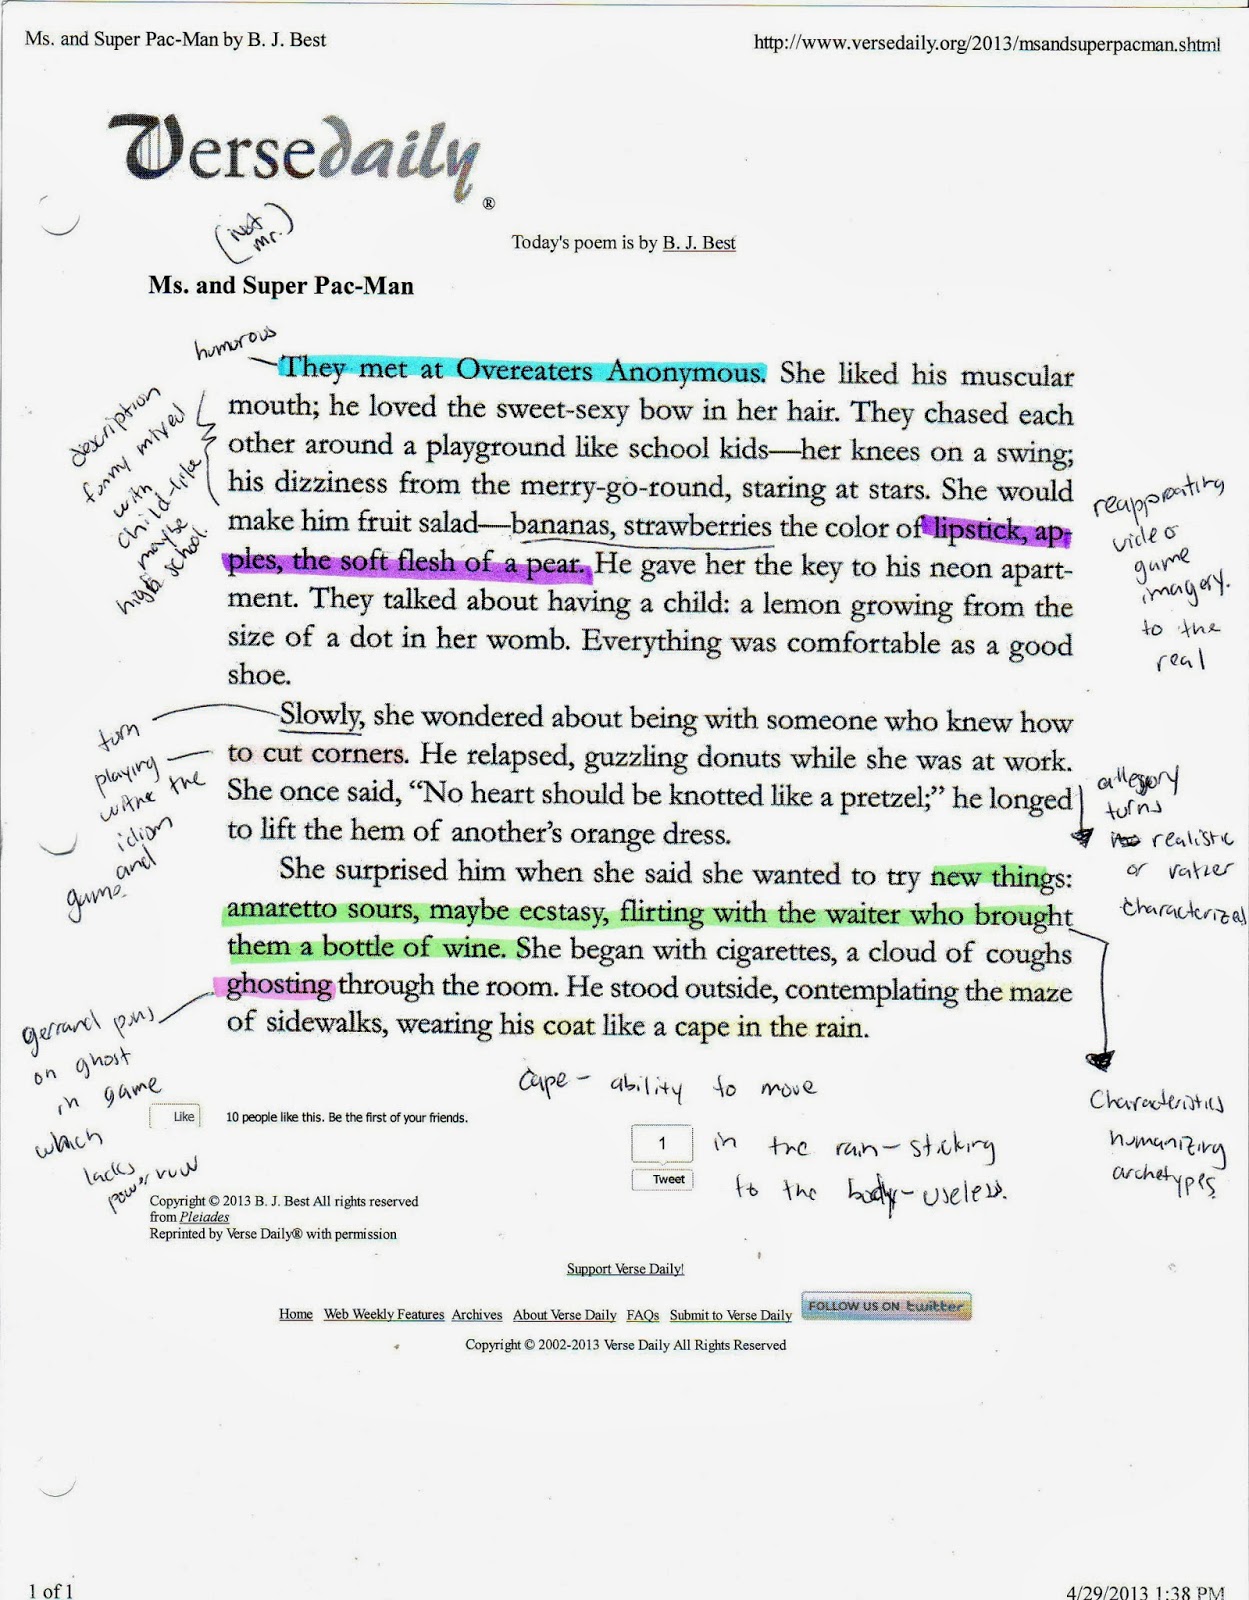 Ms. and Super Pac-Man by B. J. Best
http://www.versedaily.org/2013/msandsuperpacman.shtml
Versedaily
®
(not
mr.)
Today's poem is by B. J. Best
Ms. and Super Pac-Man
humorous
They met at Overeaters Anonymous. She liked his muscular
mouth; he loved the sweet-sexy bow in her hair. They chased each
other around a playground like school kids—her knees on a swing;
his dizziness from the merry-go-round, staring at stars. She would
make him fruit salad—bananas, strawberries the color of lipstick, ap-
ples, the soft flesh of a pear. He gave her the key to his neon apart-
ment. They talked about having a child: a lemon growing from the
size of a dot in her womb. Everything was comfortable as a good
shoe.
description
funny mixed
with
child-like
maybe
high school.
reappropating
video
game
imagery.
to the
real
Slowly, she wondered about being with someone who knew how
to cut corners. He relapsed, guzzling donuts while she was at work.
She once said, “No heart should be knotted like a pretzel;” he longed
to lift the hem of another’s orange dress.
turn
playing
withe the
idiom
and
game.
allegory
turns
realistic
or rather
characterized
She surprised him when she said she wanted to try new things:
amaretto sours, maybe ecstasy, flirting with the waiter who brought
them a bottle of wine. She began with cigarettes, a cloud of coughs
ghosting through the room. He stood outside, contemplating the maze
of sidewalks, wearing his coat like a cape in the rain.
gerrand puns
on ghost
in game
which
lacks
power
Characteristics
humanizing
archetypes
Cape - ability to move
in the rain - sticking
to the body - useless.
Like
10 people like this. Be the first of your friends.
1
Tweet
Copyright © 2013 B. J. Best All rights reserved
from Pleiades
Reprinted by Verse Daily® with permission
Support Verse Daily!
Home Web Weekly Features Archives About Verse Daily FAQs Submit to Verse Daily FOLLOW US ON twitter
Copyright © 2002-2013 Verse Daily All Rights Reserved
1 of 1
4/29/2013 1:38 PM